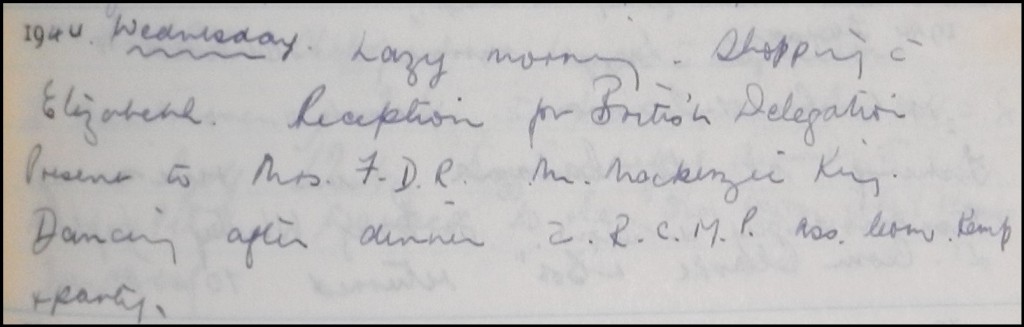 1944. Wednesday. Lazy morning. Shopping c̄
Elizabeth. Reception for British Delegation
Present to Mrs. F.D.R. Mr. Mackenzie King.
Dancing after dinner c̄ R.C.M.P. Ass. Comm. Kemp
+ party.